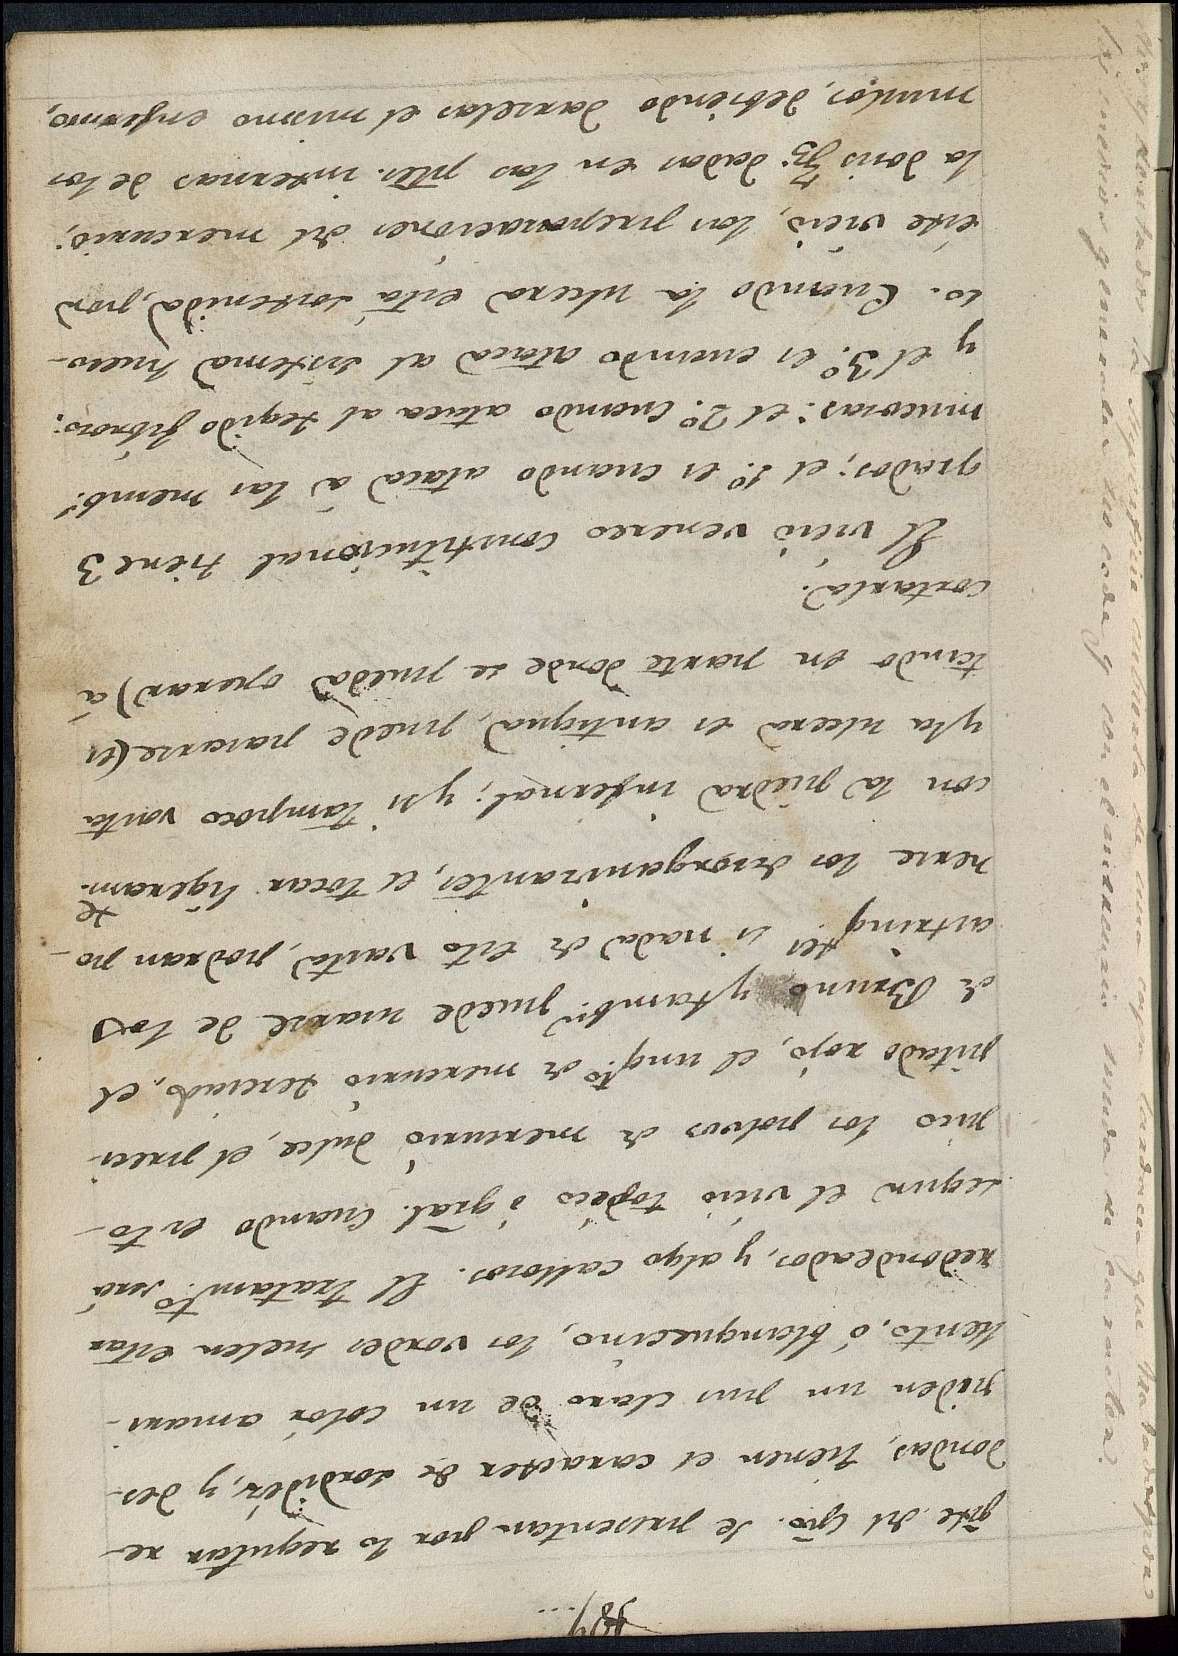 187...
pte. del Cpo. Se presentan por lo regular re-
dondas, tienen el caracter de sordidés, y des-
piden un pus claro de un color amari-
llento, ó blanquecino, los vordes suelen estar
redondeados, y algo callosos. El tratamto. será
segun el vicio topico ó gral. Cuando es to-
pico los polvos de mercurio dulce, el preci-
pitado rojo, el ungto. de mercurio terciado, el
de Bruno, y tambn. puede usarse de los
astringtes si nada de esto vasta, podran po-
nerse los desorganizantes, ó tocar ligeramte.
con la piedra infernal; y si tampoco vasta
y la ulcera es antigua, puede pasarse (es
tando en parte donde se pueda operar) á
cortarla.
El vicio venereo constitucional tiene 3
grados; el 1º. es cuando ataca á las memb.s
mucosas: el 2º. Cuando ataca al tegido fibroso;
y el 3º. es cuando ataca al sistema hueso-
so. Cuando la ulcera está sostenida, por
este vicio, las preparaciones del mercurio;
la dosis dadas en las ptes. internas de los
muslos, debiendo darselas el mismo enfermo,